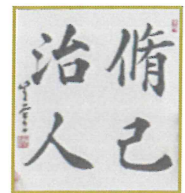 脩己
治人